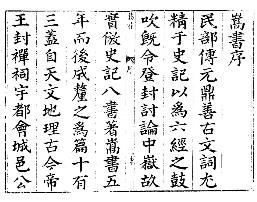 嵩書序
民部傅元鼎善古文詞尤
精于史記以為六經之鼓
吹旣令登封討論中嶽故
實倣史記八書著嵩書五
年而後成釐之為篇十有
三蓋自天文地理古今帝
王封禪祠宇都會城邑公